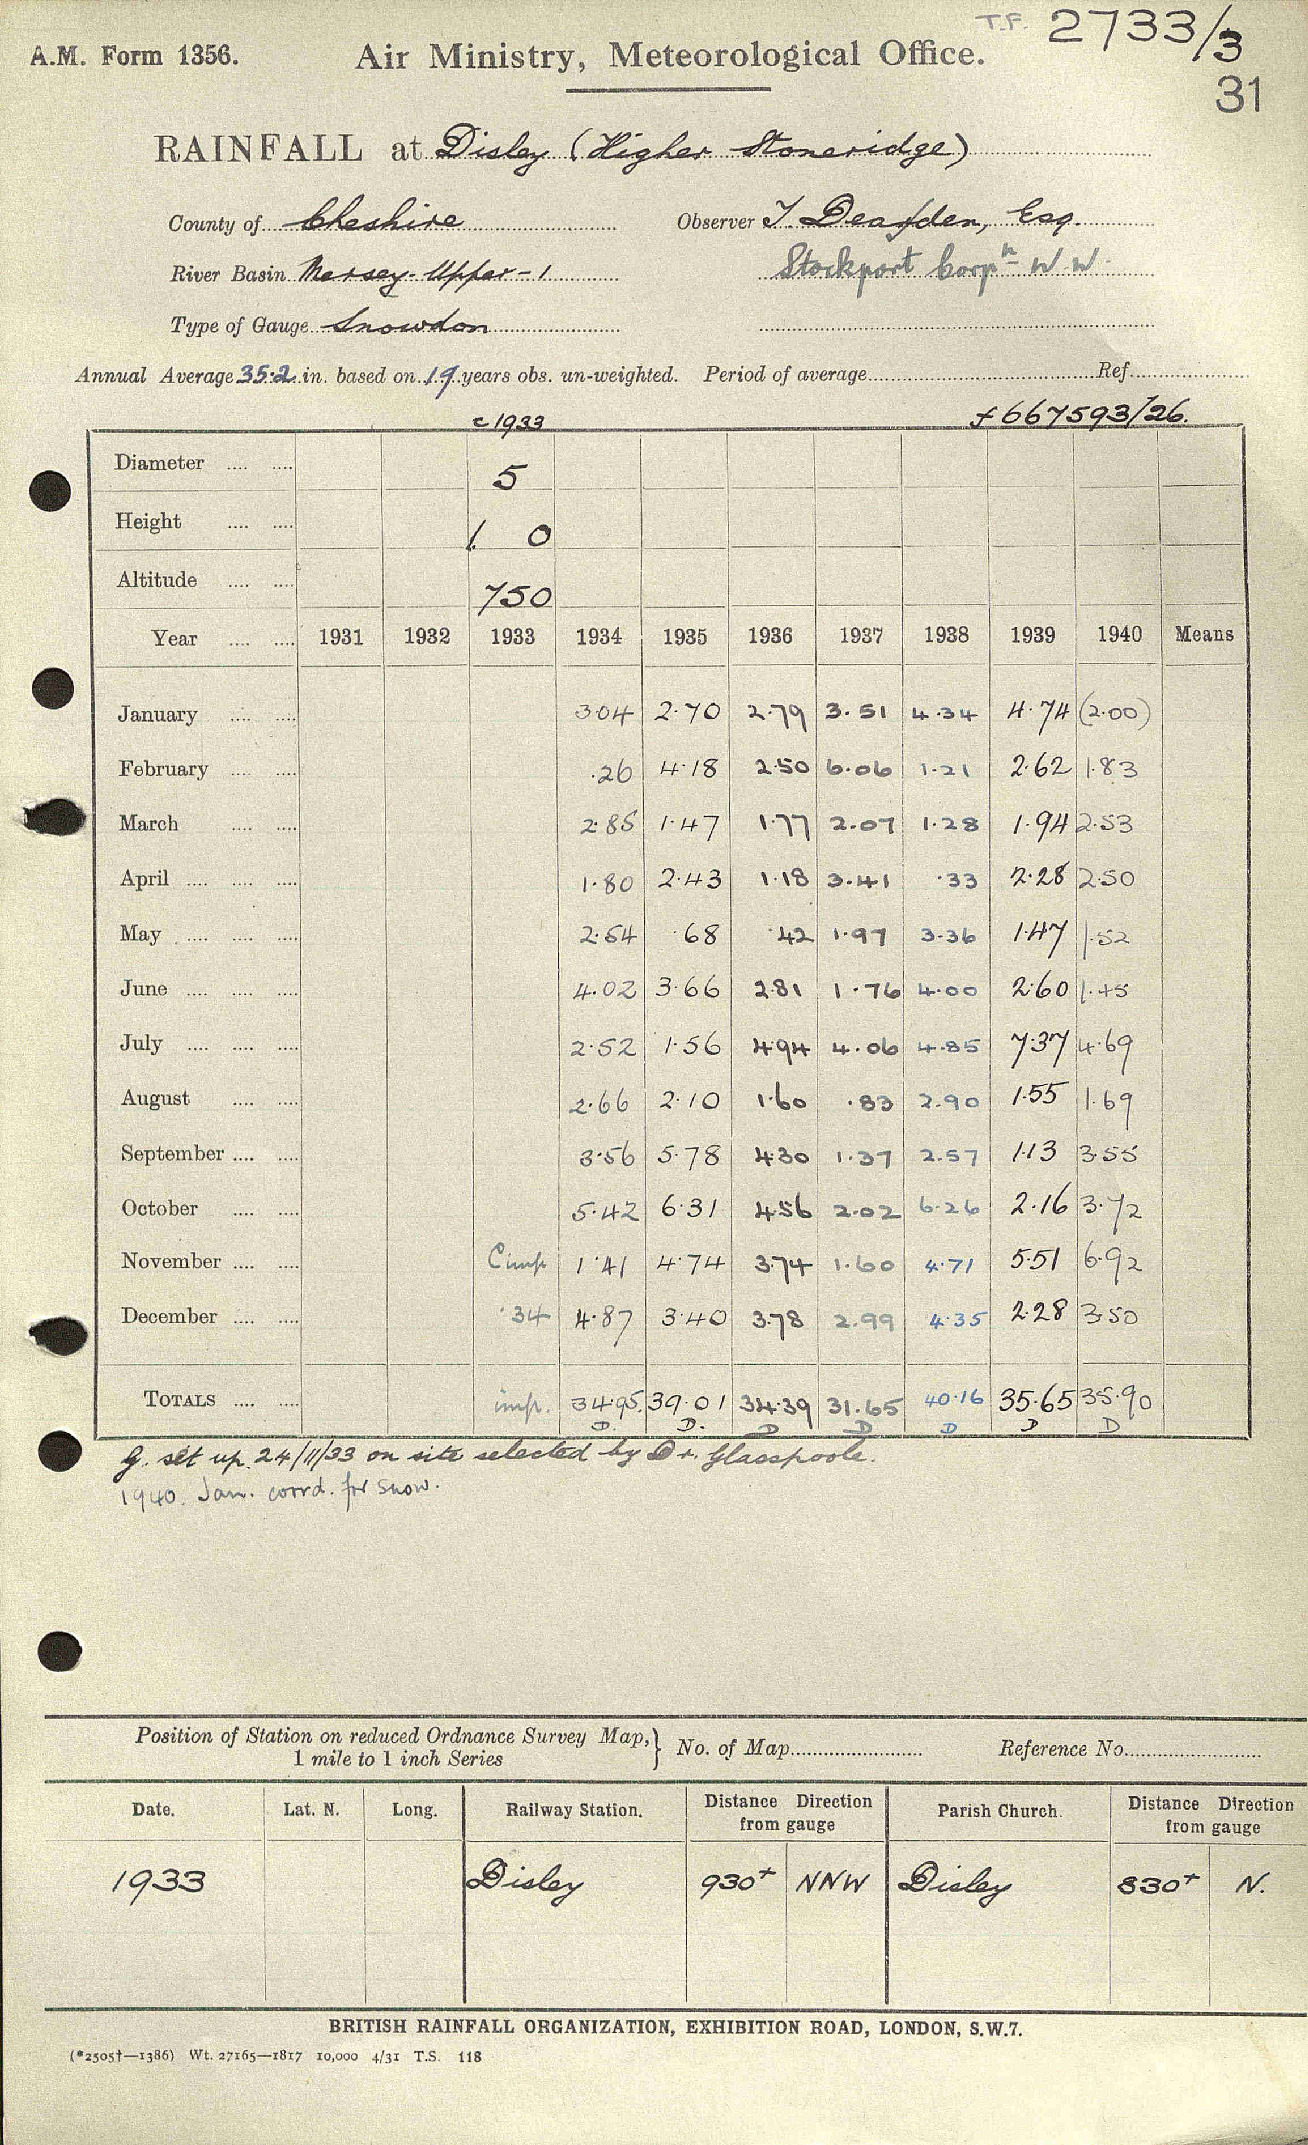 T.F. 2733/3
A.M. Form 1356. Air Ministry, Meteorological Office.
31
RAINFALL at Disley (Higher Stoneridge)
County of Cheshire Observer T. Dearden, Esq.
River Basin Mersey-Upper-1 Stockport Corpn W.W.
Type of Gauge Snowdon
Annual Average 35.2 in. based on 19 years obs. un-weighted. Period of average Ref.
c1933 f667593/26.
Diameter 5
Height 1. 0
Altitude 750
Year 1931 1932 1933 1934 1935 1936 1937 1938 1939 1940 Means
January 3.04 2.70 2.79 3.51 4.34 4.74 (2.00)
February .26 4.18 2.50 6.06 1.21 2.62 1.83
March 2.85 1.47 1.77 2.07 1.28 1.94 2.53
April 1.80 2.43 1.18 3.41 .33 2.28 2.50
May 2.54 .68 .42 1.97 3.36 1.47 1.52
June 4.02 3.66 2.81 1.76 4.00 2.60 1.45
July 2.52 1.56 4.94 4.06 4.85 7.37 4.69
August 2.66 2.10 1.60 .83 2.90 1.55 1.69
September 3.56 5.78 4.30 1.37 2.57 1.13 3.55
October 5.42 6.31 4.56 2.02 6.26 2.16 3.72
November 1.41 4.74 3.74 1.60 4.71 5.51 6.92
December .34 4.87 3.40 3.78 2.99 4.35 2.28 3.50
TOTALS imp. 34.95 39.01 34.39 31.65 40.16 35.65 35.90
D. D. D D D D D
G. set up 24/11/33 on site selected by Dr. Glasspoole.
1940. Jan. corrd. for snow.
Position of Station on reduced Ordnance Survey Map,} No. of Map Reference No.
1 mile to 1 inch Series
Date. Lat. N. Long. Railway Station. Distance Direction from gauge Parish Church. Distance Direction from gauge
1933 Disley 930+ NNW Disley 830+ N.
BRITISH RAINFALL ORGANIZATION, EXHIBITION ROAD, LONDON, S.W.7.
(*2505†—1386) Wt. 27165—1817 10,000 4/31 T.S. 118